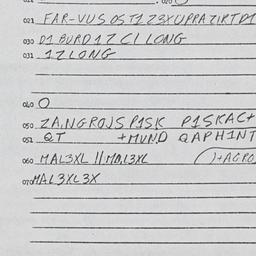 021 FAR-VUS OS T1 Z3XUPRAZIRTD1
030 D1 BURD1Z C1 LONG
031 1ZLONG
040 O
050 ZA,NGROJS P1SK P1SKACT
051 QT +MUND QAPH1NT
060 MAL3XL // MAL3XL )+AGRO
070 MAL3XL3X